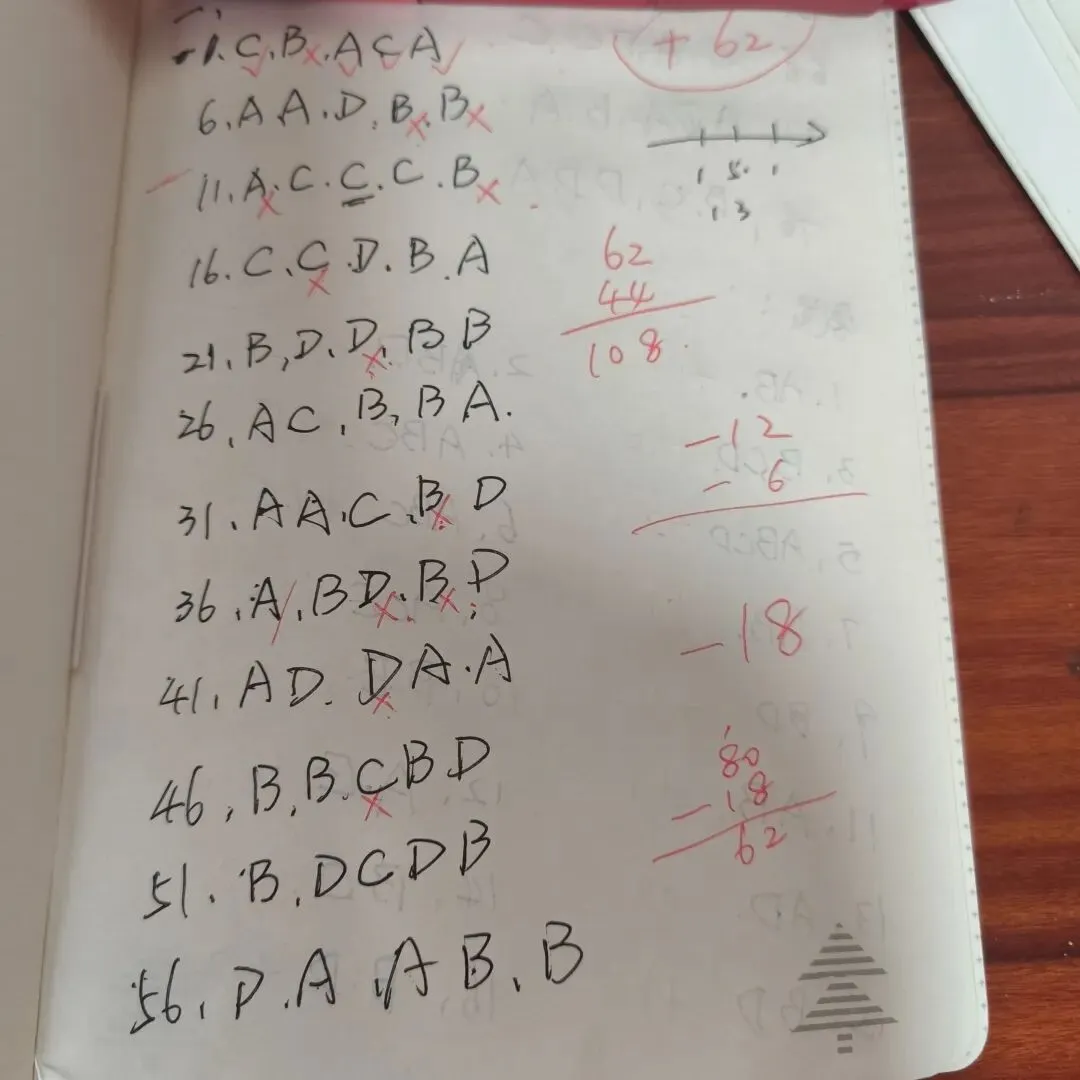 1. C. B. A C A
+ 62
6. A A. D. B. B
11. A. C. C. C. B
1 5. 1
1 3
16. C. C. D. B. A
62
44
108
21. B, D. D. B B
26. A C. B, B A.
-12
- 6
31. A A. C. B. D
36. A. B D. B. D
-18
41. A D. D A. A
80
-18
62
46. B. B. C B D
51. B. D C D B
56. D. A. A B. B